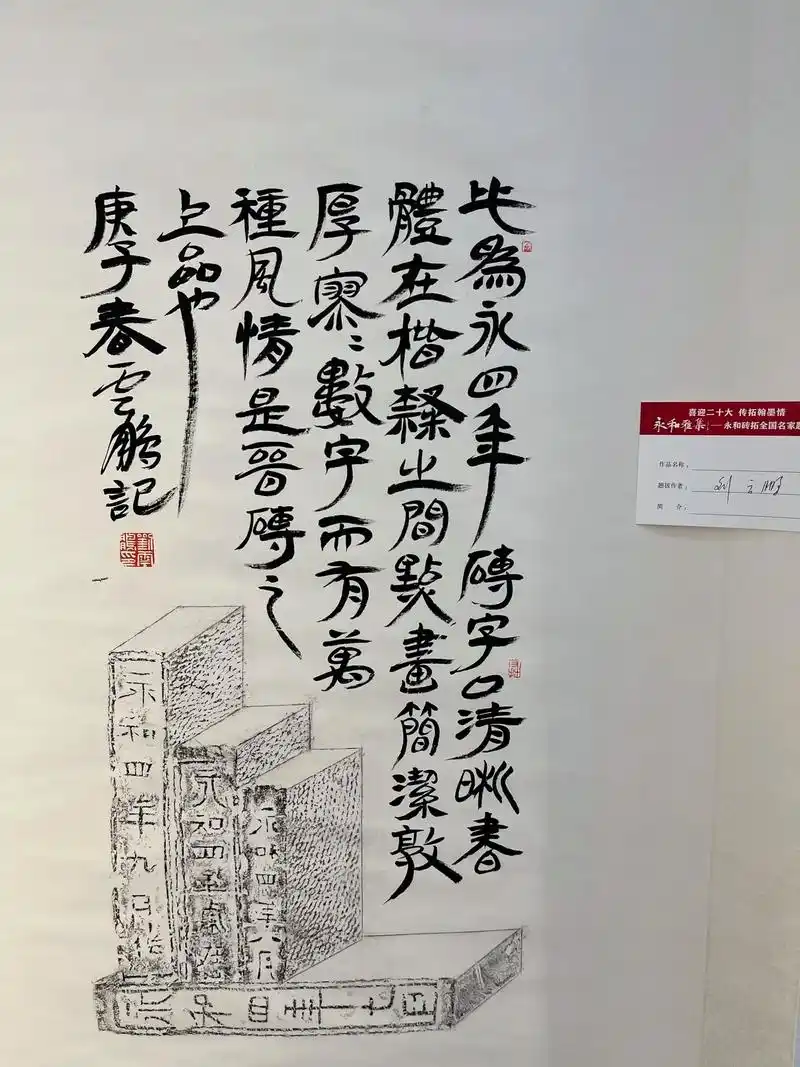 此為永四年磚字口清晰書
體在楷隸之間點畫簡潔敦
厚寥〻數字而有萬
種風情是晉磚之
上品也
庚子春雲鵬記
永和四年九月作
永和四年
永和四年八月
喜迎二十大 传拓翰墨情
永和雅集—永和砖拓全国名家题
作品名称：
题跋作者：刘云鹏
简 介：